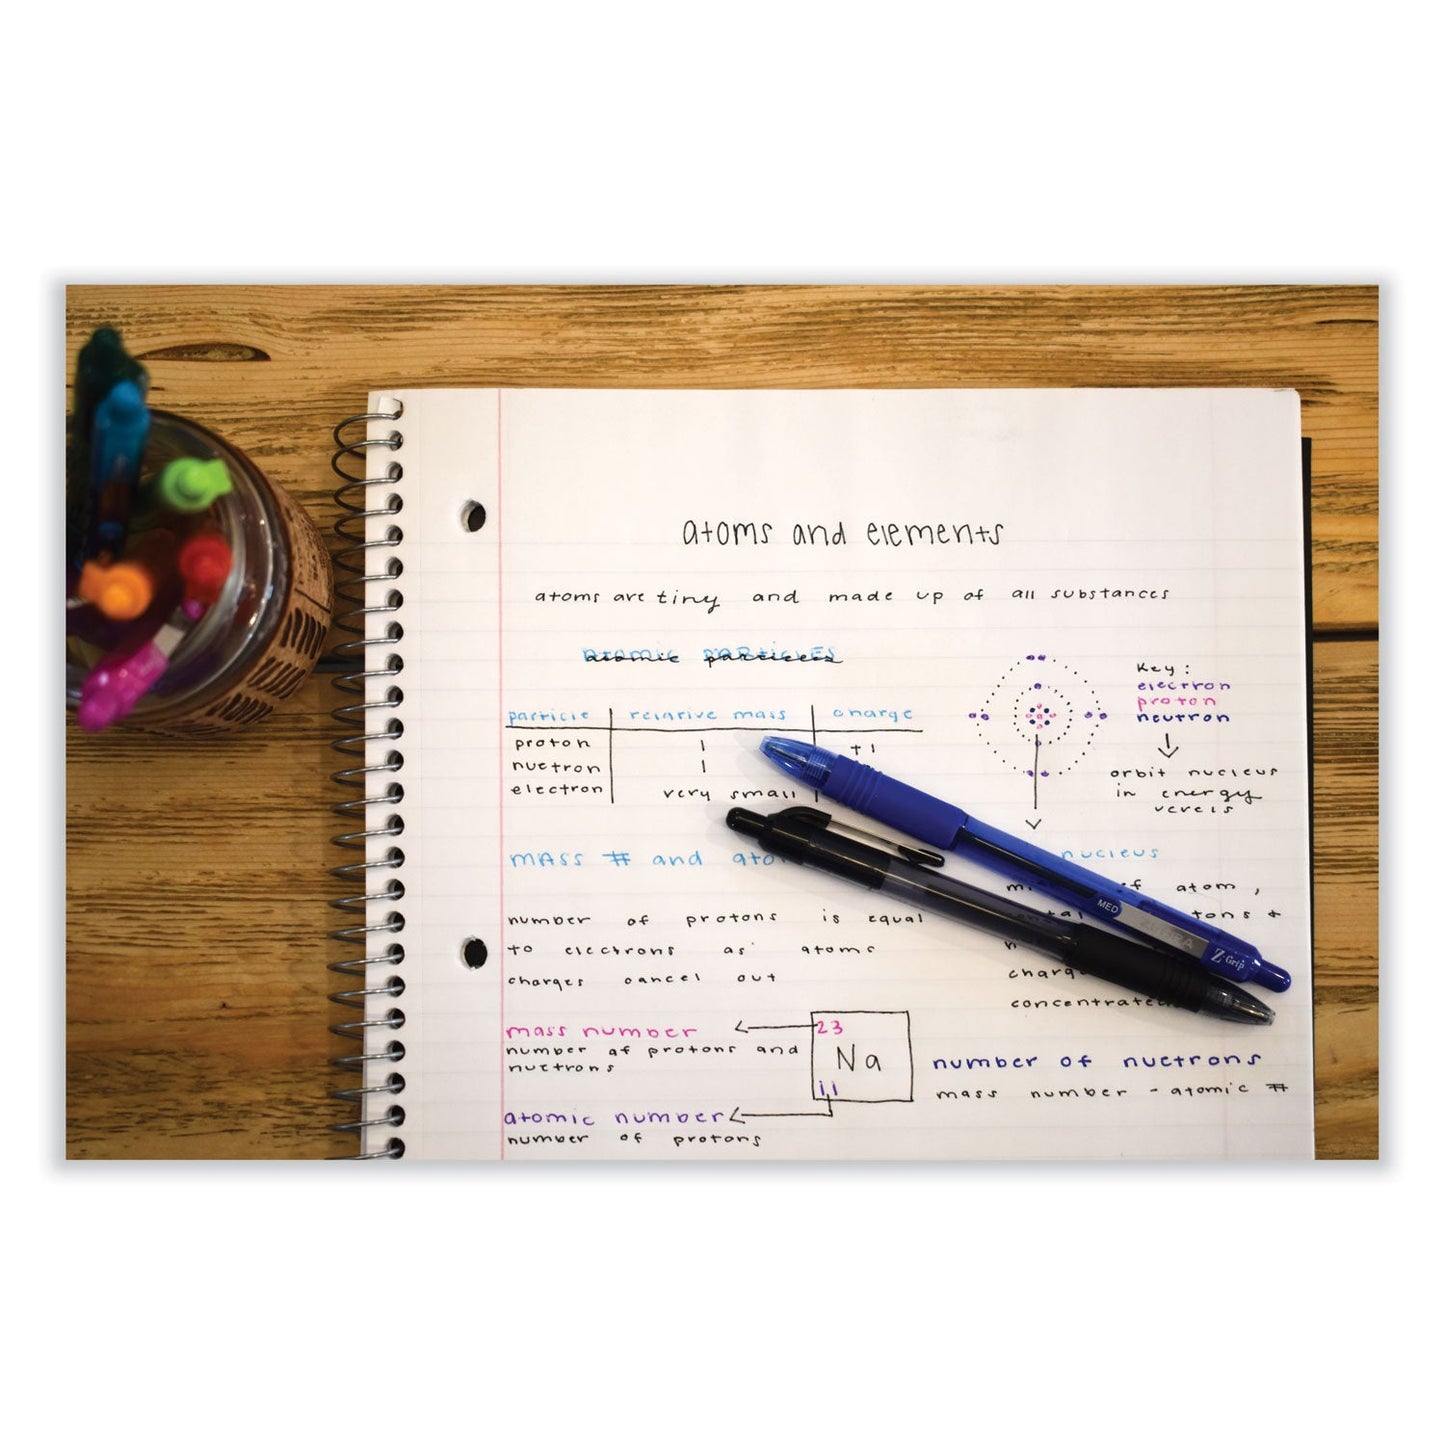 atoms and elements
atoms are tiny and made up of all substances
atomic particles
particle relative mass charge
proton 1 +1
nuetron 1
electron very small
Key:
electron
proton
neutron
orbit nucleus
in energy
MASS # and
number of protons is equal
to electrons as atoms
charges cancel out
nucleus
of atom,
mass number
number of protons and
nuetrons
23
Na
11
atomic number
number of protons
number of nuetrons
mass number - atomic #
MED
ZEBRA
Z-Grip